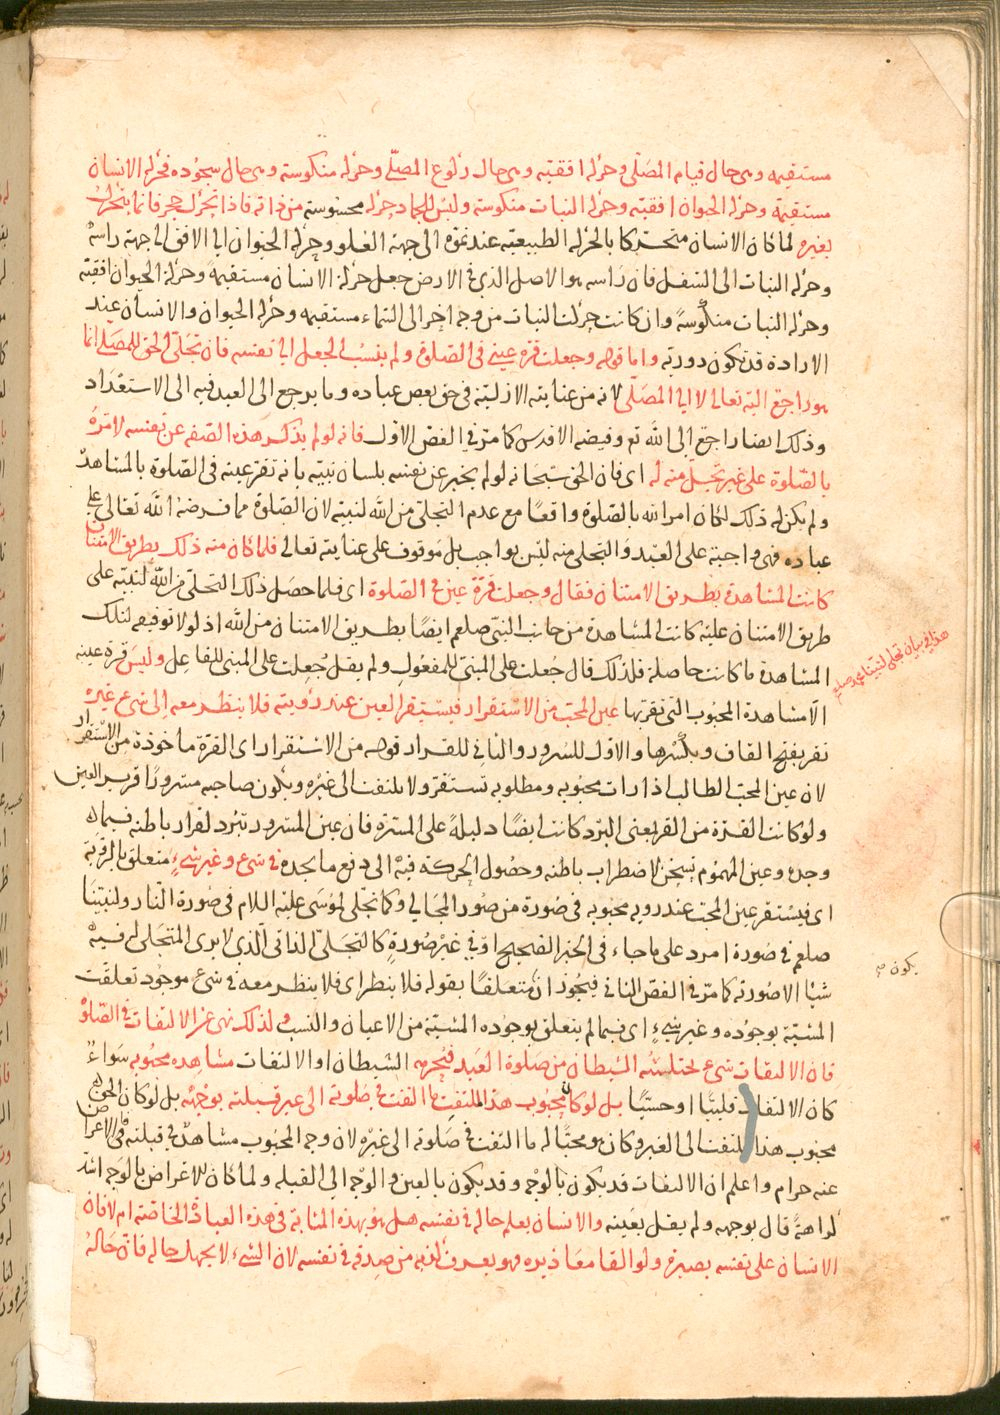 مستقيمه وهى حال قيام المصلّى وحركه افقيه وهى حال ركوع المصلّى وحركه منكوسه وهى حال سجوده فحركه الانسان
مستقيمة وحركه الحيوان افقيه وحركه النبات منكوسه وليس للجماد حركه محسوسه من ذاته فاذا تحرّك حجر فانما يتحرك
بغيره لما كان الانسان متحركا بالحركه الطبيعيه عند نموّه الى جهة العلو وحركه الحيوان الى الافق الى جهة راسه
وحركه النبات الى السفل فان راسه هو الاصل الذى فى الارض جعل حركة الانسان مستقيمه وحركة الحيوان افقيه
وحركه النبات منكوسةً وان كانت حركة النبات من وجه اخر الى السماء مستقيمه وحركه الحيوان والانسان عند
الارادة قد يكون دورته واما قوله وجعلت قرة عينى فى الصلوة ولم ينسب الجعل الى نفسه فان تجلّى الحق للمصلّى انما
هو راجع اليه تعالى لا الى المصلّى لانه من عنايته الازليّه فى حق بعض عباده وما يرجع الى العبد فيه الى الاستعداد
وذلك ايضا راجع الى الله ثم وفيضه الاقدس كما مرّ فى الفص الاول فانه لو لم يذكر هذه الصفه عن نفسه لامره
بالصّلوة على غير تجلّ منه له اى فان الحق سبحانه لو لم يخبر عن نفسه بلسان نبيه بانه تقر عينه فى الصلوة بالمشاهدة
ولم يكن له ذلك لكان امر الله بالصّلوة واقعًا مع عدم التجلى من الله لنبيه لان الصّلوة مما فرضه الله تعالى على
عباده فهى واجبة على العبد والتجلى منه ليس بواجب بل موقوف على عنايته تعالى فلما كان منه ذلك بطريق الامتنان
كانت المشاهدة بطريق الامتنان فقال وجعلت قرّة عينى فى الصلوة اى فلما حصل ذلك التجلى من الله لنبيه على
طريق الامتنان عليه كانت المشاهدة من جانب النبى صلعم ايضًا بطريق الامتنان من الله اذ لولا توفيقه لتلك
المشاهدة ما كانت حاصلة فلذلك قال جُعلت على المبنى للمفعول ولم يقل جعلت على المبنى للفاعل وليس قرة عينه
هذا فى بيان تجلى لنبينا محمد صلعم
الّا مشاهدة المحبوب التى تقر بها عين المحبّ من الاستقرار فيستقر العين عند رؤيته فلا ينظر معه الى شئ غيره
تقر بفتح القاف وبكسرها والاول للسرور والثانى للقرار قوله من الاستقرار اى القرة ماخوذة من الاستقرار
لان عين المحبّ الطالب اذا رات محبوبه ومطلوبه تستقرّ ولا يلتفت الى غيره ويكون صاحبه مسرورًا قرير العين
ولو كانت القرّة من القر بمعنى البرد كانت ايضًا دليلةً على المسرّة فان عين المسرور تبرد لقرار باطنه فيما له
وجده وعين المهموم تسخن لاضطراب باطنه وحصُول الحركة فيه الى دفع ما يجده فى شئ وغير شئ متعلق بالرؤية
اى فيستقر عين المحبّ عند رويه محبوبه فى صُورة من صُور المجالى وكما تجلّى لموُسى عليه السلام فى صُورة النّار ولنبيّنا
صلعم فى صُورة امرد على ما جاء فى الخبر الصّحيح او فى غير صُورةٍ كالتجلّى الذاتى الّذى لا يرى المتجلى له فيه
يكون صح
شيئا الا صُورته كما مرّ فى الفص الثانى فيجُوز ان متعلقًا بقوله فلا ينظر اى فلا ينظر معه فى شئ موجُود تعلقت
المشيّة بوجُوده وغير شئ اى فيما لم يتعلق بوجُوده المشيّة من الاعيان والنسب ولذلك نهى عن الالتفات فى الصّلوة
فان الالتفات شئ يختلسه الشيطان من صَلوة العبد فيحرمه الشيطان او الالتفات مشاهده محبُوبه سَواءٌ
كان الالتفات قلبيًّا او حسّيًّا بل لو كان محبُوب هذا الملتفت ما التفت فى صَلوته الى غير قبلته بوجْهه بل لو كان الحق
محبُوب هذا الملتفت الى الغير وكان هو محبًّا له ما التفت فى صَلوته الى غيره لان وجه المحبُوب مشاهدٌ فى قبلته فى الاعراض
عنه حرام واعلم ان الالتفات قد يكون بالوجْه وقد يكون بالعين والوجْه الى القبله ولما كان للاعراض بالوجه اشد
كراهةً قال بوجهه ولم يقل بعَينه والانسان يعلم حاله فى نفسه هل هو بهذه المثابة فى هذه العبادة الخاصّة ام لا فان
الانسان على نفسه بصيرة ولو القا معاذيره فهو يعرف كذبه من صِدقه فى نفسه لان الشئ لا يجهل حاله فان حَالهُ